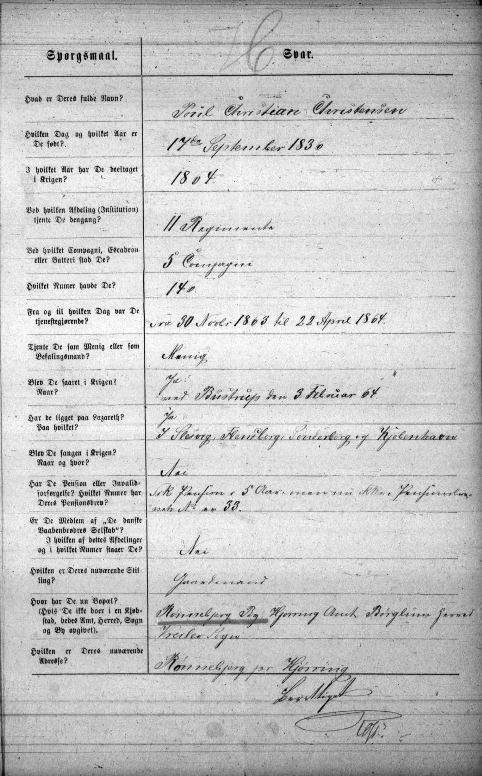 Spørgsmaal.
Svar.
Hvad er Deres fulde Navn?
Poul Christian Christensen
Hvilken Dag og hvilket Aar er
De født?
17de September 1830
I hvilket Aar har De deeltaget
i Krigen?
1864
Ved hvilken Afdeling (Institution)
tjente De dengang?
11 Regimente
Ved hvilket Compagni, Escadron
eller Batteri stod De?
5 Compagni
Hvilket Numer havde De?
140
Fra og til hvilken Dag var De
tjenestegjørende?
Fra 30 Novbr 1863 til 22 April 1864.
Tjente De som Menig eller som
Befalingsmand?
Menig
Blev De saaret i Krigen?
Naar?
Ja
ved Bustrup den 3 Februar 64
Har de ligget paa Lazareth?
Paa hvilket?
Ja
I Slesvig, Flensborg, Sønderborg og Kjøbenhavn
Blev De fangen i Krigen?
Naar og hvor?
Nei
Har De Pension eller Invalid-
forsørgelse? Hvilket Numer har
Deres Pensionsbrev?
fik Pension i 5 Aar men nu ikke. Pensionsbre-
vets No er 33.
Er De Medlem af „De danske
Vaabenbrødres Selskab"?
I hvilken af dettes Afdelinger
og i hvilket Numer staaer De?
Nei
Hvilken er Deres nuværende Stil-
ling?
Gaardmand
Hvor har De nu Bopæl?
(Hvis De ikke boer i en Kjøb-
stad, bedes Amt, Herred, Sogn
og By opgivet).
Rønnebjerg By Hjørring Amt Børglum Herred
Sogn
Hvilken er Deres nuværende
Adresse?
Rønnebjerg pr Hjørring